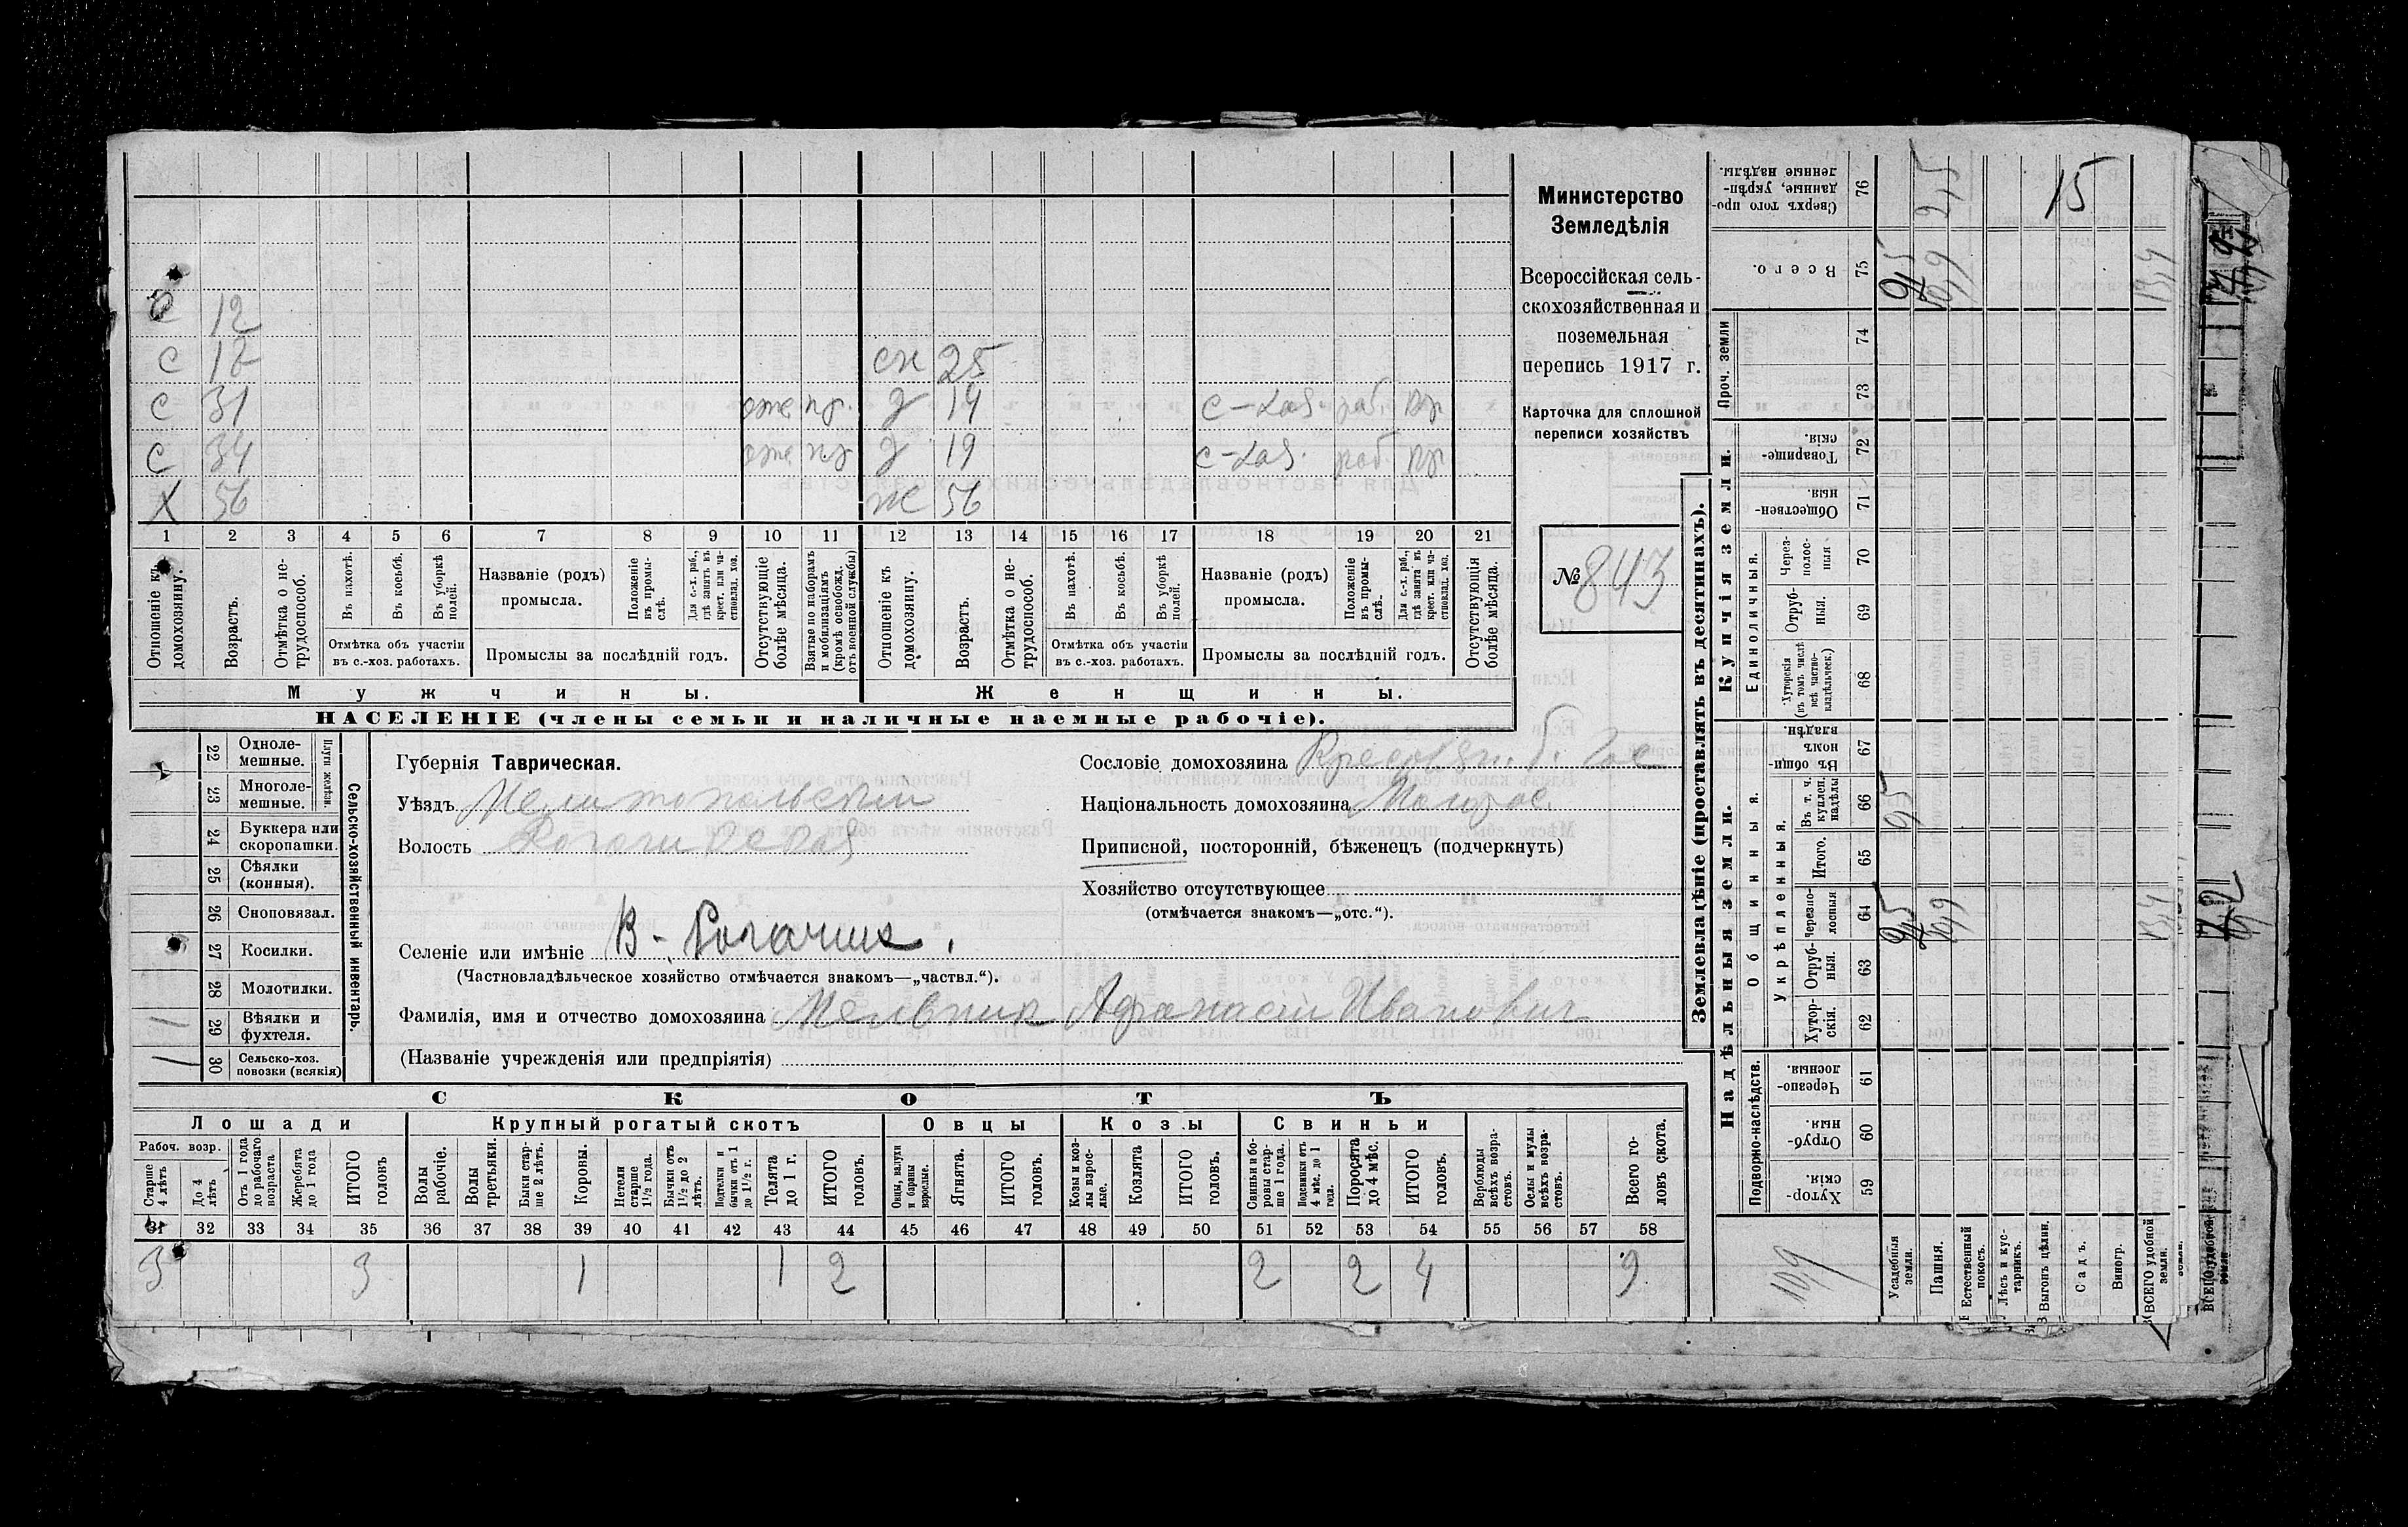 Министерство
Земледѣлія
Всероссійская сель-
скохозяйственная и
поземельная
перепись 1917 г.
Карточка для сплошной
переписи хозяйствъ
№ 843
С 12
С 12 сн 25
С 31 пр. д 14 раб.
С 34 д 19 раб.
Х 56 ж 56
1 2 3 4 5 6 7 8 9 10 11 12 13 14 15 16 17 18 19 20 21
Отношеніе къ домохозяину.
Возрастъ.
Отмѣтка о не-трудоспособ.
Въ пахотѣ.
Въ косьбѣ.
Въ уборкѣ полей.
Отмѣтка объ участіи
въ с.-хоз. работахъ.
Названіе (родъ)
промысла.
Положеніе въ промы-слѣ.
Для с.-х. раб., гдѣ занятъ въ крест. или ча-стновлад. хоз.
Промыслы за послѣдній годъ.
Отсутствующіе болѣе мѣсяца.
Взятые по наборамъ и мобилизаціямъ (кромѣ освобожд. отъ военной службы)
Отношеніе къ домохозяину.
Возрастъ.
Отмѣтка о не-трудоспособ.
Въ пахотѣ.
Въ косьбѣ.
Въ уборкѣ полей.
Отмѣтка объ участіи
въ с.-хоз. работахъ.
Названіе (родъ)
промысла.
Положеніе въ промы-слѣ.
Для с.-х. раб., гдѣ занята въ крест. или ча-стновлад. хоз.
Промыслы за послѣдній годъ.
Отсутствующія болѣе мѣсяца.
Мужчины. Женщины.
НАСЕЛЕНІЕ (члены семьи и наличные наемные рабочіе).
Сельско-хозяйственный инвентарь.
Плуги желѣзн.
22 Одноле-мешные.
23 Многоле-мешные.
24 Буккера или скоропашки.
25 Сѣялки (конныя).
26 Сноповязал.
27 Косилки.
28 Молотилки.
1 29 Вѣялки и фухтеля.
1 30 Сельско-хоз. повозки (всякія)
Губернія Таврическая.
Уѣздъ Мелитопольскій
Волость
Селеніе или имѣніе В-Рогачик.
(Частновладѣльческое хозяйство отмѣчается знакомъ—„частвл.“).
Фамилія, имя и отчество домохозяина Мельник Афанасій Иванович
(Названіе учрежденія или предпріятія)
Сословіе домохозяина
Національность домохозяина Малорос.
Приписной, посторонній, бѣженецъ (подчеркнуть)
Хозяйство отсутствующее
(отмѣчается знакомъ—„отс.“).
СКОТЪ
Лошади Крупный рогатый скотъ Овцы Козы Свиньи
Рабоч. возр.
Старше 4 лѣтъ
До 4 лѣтъ
Отъ 1 года до рабочаго возраста
Жеребята до 1 года
ИТОГО головъ
Волы рабочіе.
Волы третьяки.
Быки стар-ше 2 лѣтъ.
Коровы.
Нетели старше 1½ года.
Бычки отъ 1½ до 2 лѣтъ.
Подтелки и бычки отъ 1 до 1½ г.
Телята до 1 г.
ИТОГО головъ.
Овцы, валухи и бараны взрослые.
Ягнята.
ИТОГО головъ.
Козы и коз-лы взрос-лые.
Козлята
ИТОГО головъ.
Свиньи и бо-ровы стар-ше 1 года.
Подсвинки отъ 4 мѣс. до 1 года.
Поросята до 4 мѣс.
ИТОГО головъ.
Верблюды всѣхъ возра-стовъ.
Ослы и мулы всѣхъ возра-стовъ.
Всего го-ловъ скота.
31 32 33 34 35 36 37 38 39 40 41 42 43 44 45 46 47 48 49 50 51 52 53 54 55 56 57 58
3 3 1 1 2 2 2 4 9
Землевладѣніе (проставлять въ десятинахъ).
Надѣльныя земли. Купчія земли.
Подворно-наслѣдств.
Хутор-скія. 59
Отруб-ныя. 60
Черезпо-лосныя. 61
Общинныя.
Укрѣпленныя.
Хутор-скія. 62
Отруб-ныя. 63
Черезпо-лосныя 64
Итого. 65
Въ т. ч. куплен. надѣлы 66
Въ общин-номъ владѣн. 67
Единоличныя.
Хуторскія (въ томъ числѣ всѣ частно-владѣльческ.) 68
Отруб-ныя. 69
Через-полос-ныя 70
Обществен-ныя. 71
Товарище-скія. 72
Проч. земли
73
74
Всего. 75
Сверхъ того про-данные, укрѣп-ленные надѣлы. 76
10,9
Усадебныя земли.
Пашня. 10,9 10,9
Естественный покосъ.
Лѣсъ и кус-тарникъ.
Выгонъ цѣлин.
Садъ. 15
Виногр.
ВСЕГО удобной земли. 13,4 13,4